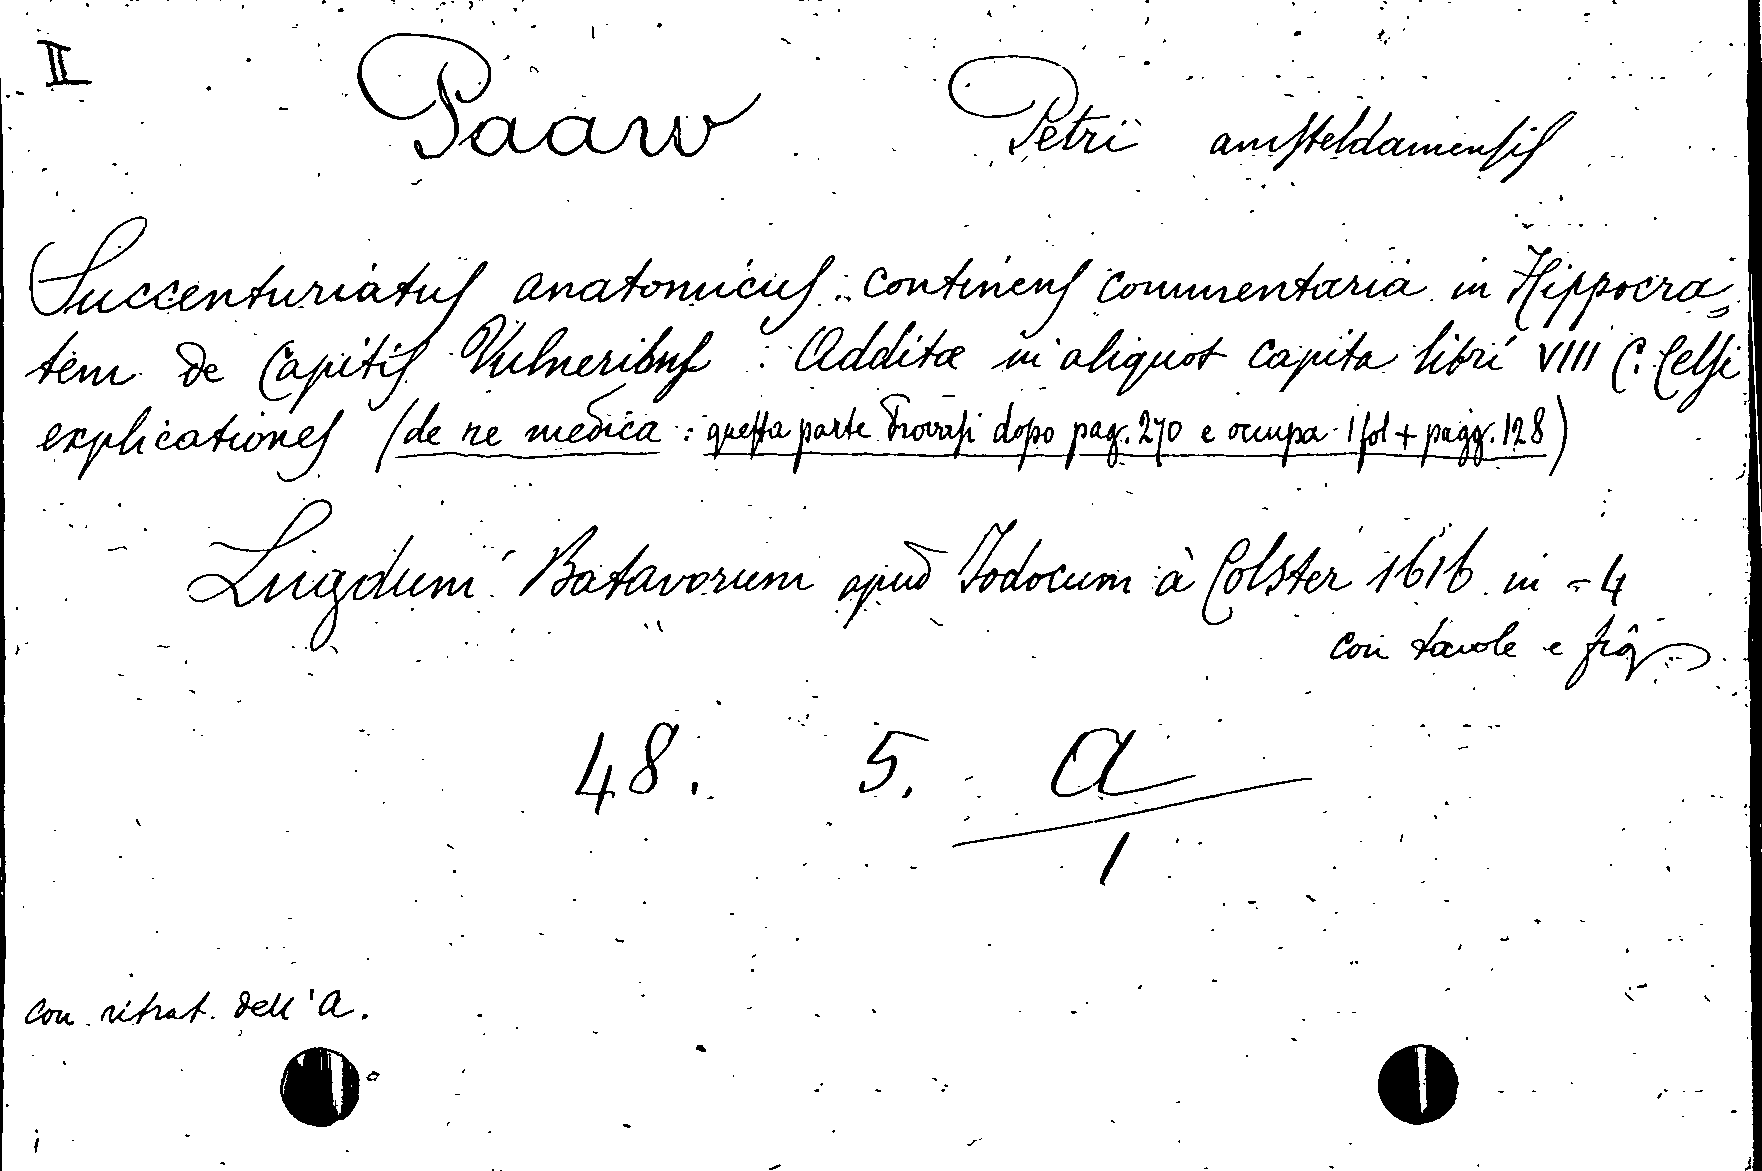 II
Paaw Petri amsteldamensis
Succenturiatus anatomicus: continens commentaria in Hippocra=
tem de Capitis Vulneribus. Additæ in aliquot capita libri VIII C. Celsi
explicationes (de re medica: questa parte trovasi dopo pag. 270 e occupa 1 fol + pagg. 128)
Lugduni Batavorum apud Iodocum à Colster 1616 in -4
con tavole e fig.
48. 5. A
1
con ritrat. dell'A.